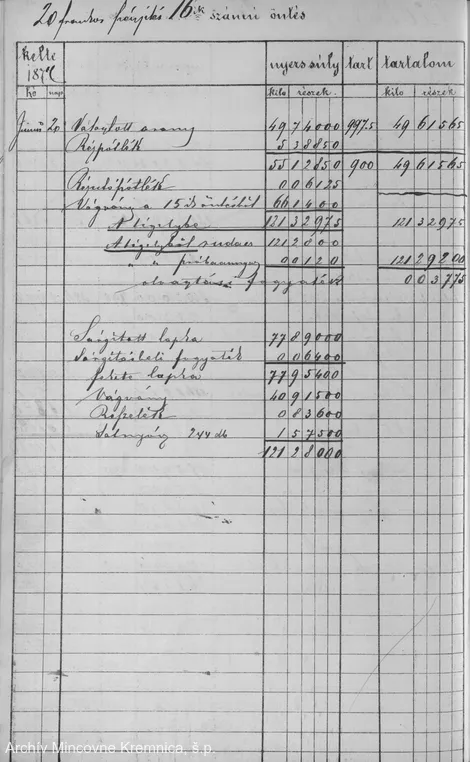 20 frankos pénzjitás 16ik számú öntés
kelte
187
nyers súly tart tartalom
hó nap kilo részek. kilo részek
Június 20 Választott arany 49 74000 9975 49 61565
Rézpótlék 5 38850
55 12850 900 49 61565
Rézpótlék 0 06125
Vágvány a 15ik öntésből 66 1400
A tégelybe 121 32975 121 32975
A tégelyből rudas 121 2800
" " próbaarany 00120 121 29200
olvasztási fogyaték 0 03775
Sárgított lapka 77 89000
Sárgitásbeli fogyaték 0 06400
fekete lapka 77 95400
Vágvány 40 91500
Reszelék 0 83600
244 db 1 57500
121 28000
Archív Mincovne Kremnica, š.p.